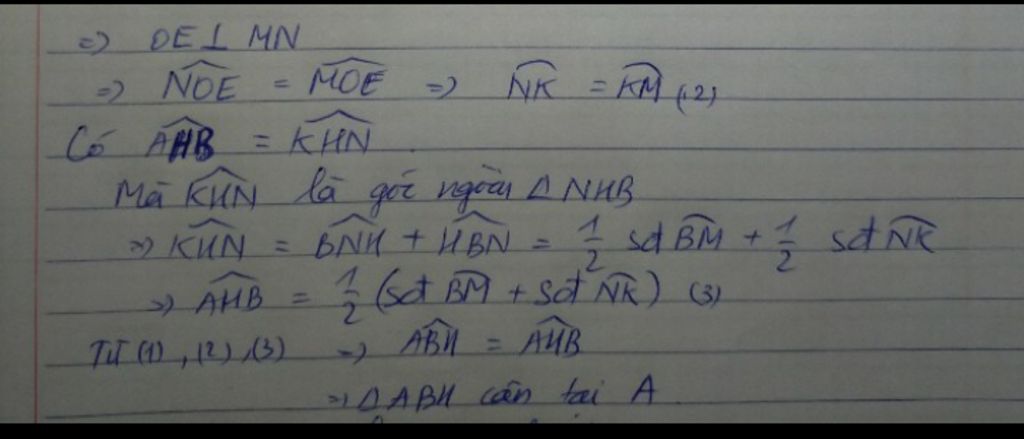 => OE ⊥ MN
=> $\widehat{NOE}$ = $\widehat{MOE}$ => $\overset{\frown}{NK}$ = $\overset{\frown}{KM}$ (2)
Có $\widehat{AHB}$ = $\widehat{KHN}$
Mà $\widehat{KHN}$ là góc ngoài Δ NHB
=> $\widehat{KHN}$ = $\widehat{BNH}$ + $\widehat{HBN}$ = $\frac{1}{2}$ sđ $\overset{\frown}{BM}$ + $\frac{1}{2}$ sđ $\overset{\frown}{NK}$
=> $\widehat{AHB}$ = $\frac{1}{2}$ (sđ $\overset{\frown}{BM}$ + sđ $\overset{\frown}{NK}$) (3)
Từ (1), (2), (3) => $\widehat{ABH}$ = $\widehat{AHB}$
=> Δ ABH cân tại A